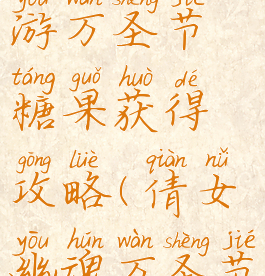 yóu wàn shèng jié
游万圣节
táng guǒ huò dé
糖果获得
gōng lüè qiàn nǚ
攻略(倩女
yōu hún wàn shèng jié
幽魂万圣节